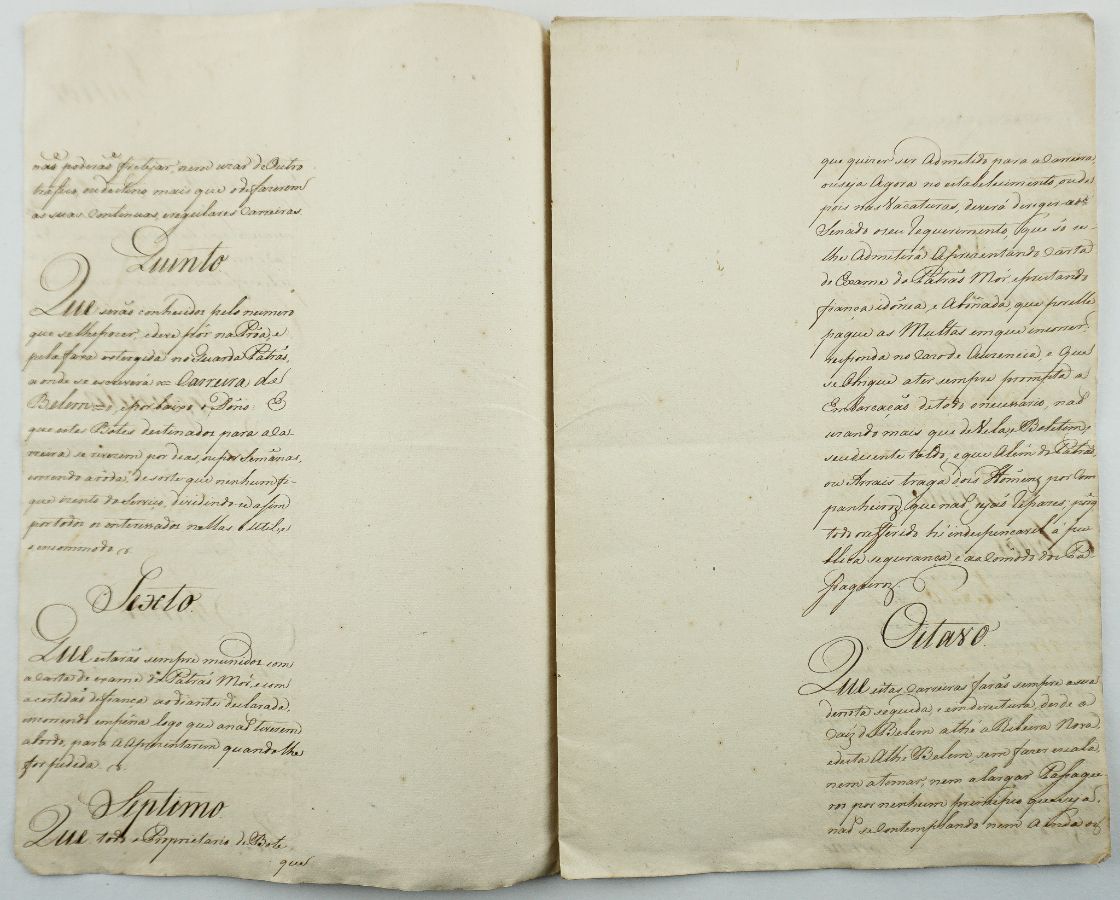 não poderão fretejar, nem uzar de Outro
trafico, ou destino mais que o de fazerem
as suas continuas, e regulares Carreiras.
Quinto
Que serão conhecidos pelo numero
que se lhe pozer, e deve pôr na Prôa, e
pela faxa no Guarda Patrão,
a onde se escreverá = Carreira de
Belem = e, e por baixo o Dono. E
que estes Botes destinados para a Ca-
rreira se por dias, ou por Semânas,
correndo a roda, de sorte que nenhum fi-
que izento do Serviço, dividindo-se assim
por todos os enteressados nellas o Util, e
o encommodo
Sexto
Que estarão sempre munidos com
a Carta de exame do Patrão Mór, e com
a certidão de fiança ao diante declarada,
incorrendo em pena logo que a não tiverem
abordo, para a aprezentarem quando lhe
for pedida.
Septimo
Que todo o Proprietario de Bote
que
que quizer ser Admetido para a Carreira,
ou seja Agora no estabelecimento, ou de-
pois nas Vacaturas, deverá dereger ao
Senado o seu Requerimento, que só se
lhe Admeterá Aprezentando Carta
de Exame do Patrão Mór, e prestando
fiança idónea, e Abonada, que por elle
pague as Multas em que incorrer,
responda no cazo de Auzencia, e Que
se Obrigue a ter sempre prompta a
Embarcação de todo o necessario, não
uzando mais que de Vela, e
seu decente Toldo, e que Além do Patrão,
ou Arrais traga dois Homens por Com-
panheiros, que não sejão Rapazes, porq
todo o refferido hé indespençavel á pu-
blica segurança, e aa Cómodo dos Pas-
sageiros.
Oitavo
Que estas Carreiras farão sempre a sua
derrota seguida, e em dereitura, desde o
Caiz de Belem athé a Ribeira Nova,
e desta Athé Belem, sem fazer escala,
nem a tomar, nem a largar Passagei-
ros por nenhum principio que seja,
não se contemplando nem Ainda os